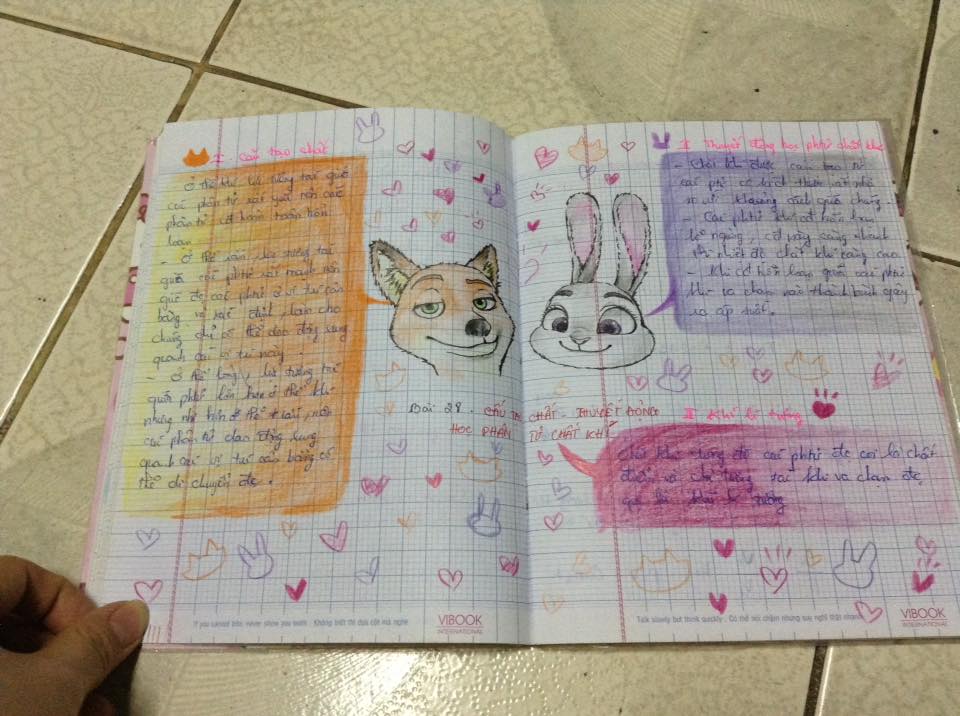 I. Cấu tạo chất
Ở thể khí, lực tương tác giữa
các phân tử rất yếu nên các
phân tử cđ hoàn toàn hỗn
loạn.
- Ở thể rắn, lực tương tác
giữa các phtử rất mạnh nên
giữ đc các phtử ở vị trí cân
bằng và xác định, làm cho
chúng chỉ có thể dao động xung
quanh các vị trí này.
- Ở thể lỏng, lực tương tác
giữa phtử lớn hơn ở thể khí
nhưng nhỏ hơn ở thể rắn, nên
các phân tử dao động xung
quanh các vị trí cân bằng có
thể di chuyển đc.
If you cannot bite, never show you teeth Không biết thì dựa cột mà nghe
VIBOOK
INTERNATIONAL
Bài 28. CẤU TẠO CHẤT. THUYẾT ĐỘNG
HỌC PHÂN TỬ CHẤT KHÍ
I Thuyết động học phtử chất khí
- Chất khí được cấu tạo từ
các phtử có kích thước rất nhỏ
so với khoảng cách giữa chúng.
- Các phtử khí cđ hỗn loạn
ko ngừng, cđ này càng nhanh
thì nhiệt độ chất khí càng cao.
- Khi cđ hỗn loạn các phtử
khí va chạm vào thành bình gây
ra áp suất.
II Khí lí tưởng
Chất khí trong đó các phtử đc coi là chất
điểm và chỉ tương tác khi va chạm đc
gọi là khí lí tưởng
Talk slowly but think quickly. Có thể nói chậm nhưng suy nghĩ thật nhanh
VIBOOK
INTERNATIONAL